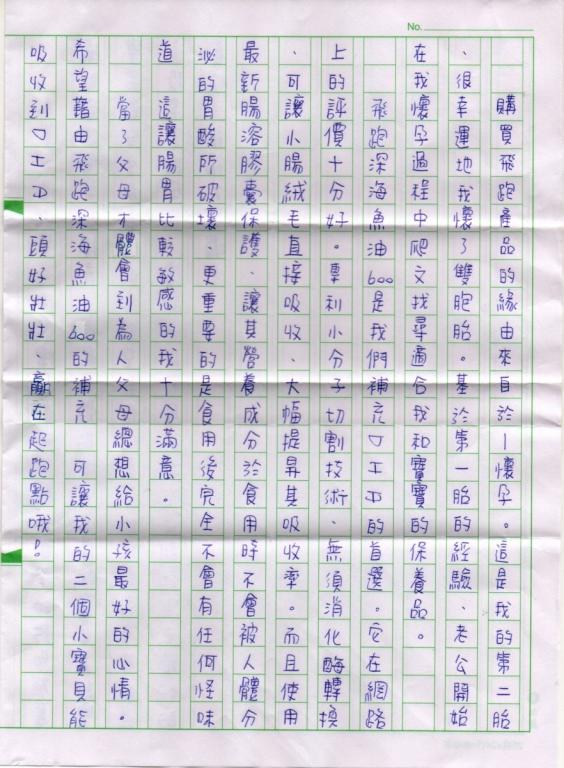 No.
購買飛跑產品的緣由來自於一懷孕。這是我的第二胎
、很幸運地我懷了雙胞胎。基於第一胎的經驗、老公開始
在我懷孕過程中爬文找尋適合我和寶寶的保養品。
飛跑深海魚油600是我們補充DHA的首選。它在網路
上的評價十分好。專利小分子切割技術、無須消化酶轉換
、可讓小腸絨毛直接吸收、大幅提昇其吸收率。而且使用
最新腸溶膠囊保護、讓其營養成分於食用時不會被人體分
泌的胃酸所破壞、更重要的是食用後完全不會有任何怪味
道 這讓腸胃比較敏感的我十分滿意。
當了父母才體會到為人父母總想給小孩最好的心情。
希望藉由飛跑深海魚油600的補充 可讓我的二個小寶貝能
吸收到DHA、頭好壯壯、贏在起跑點哦!